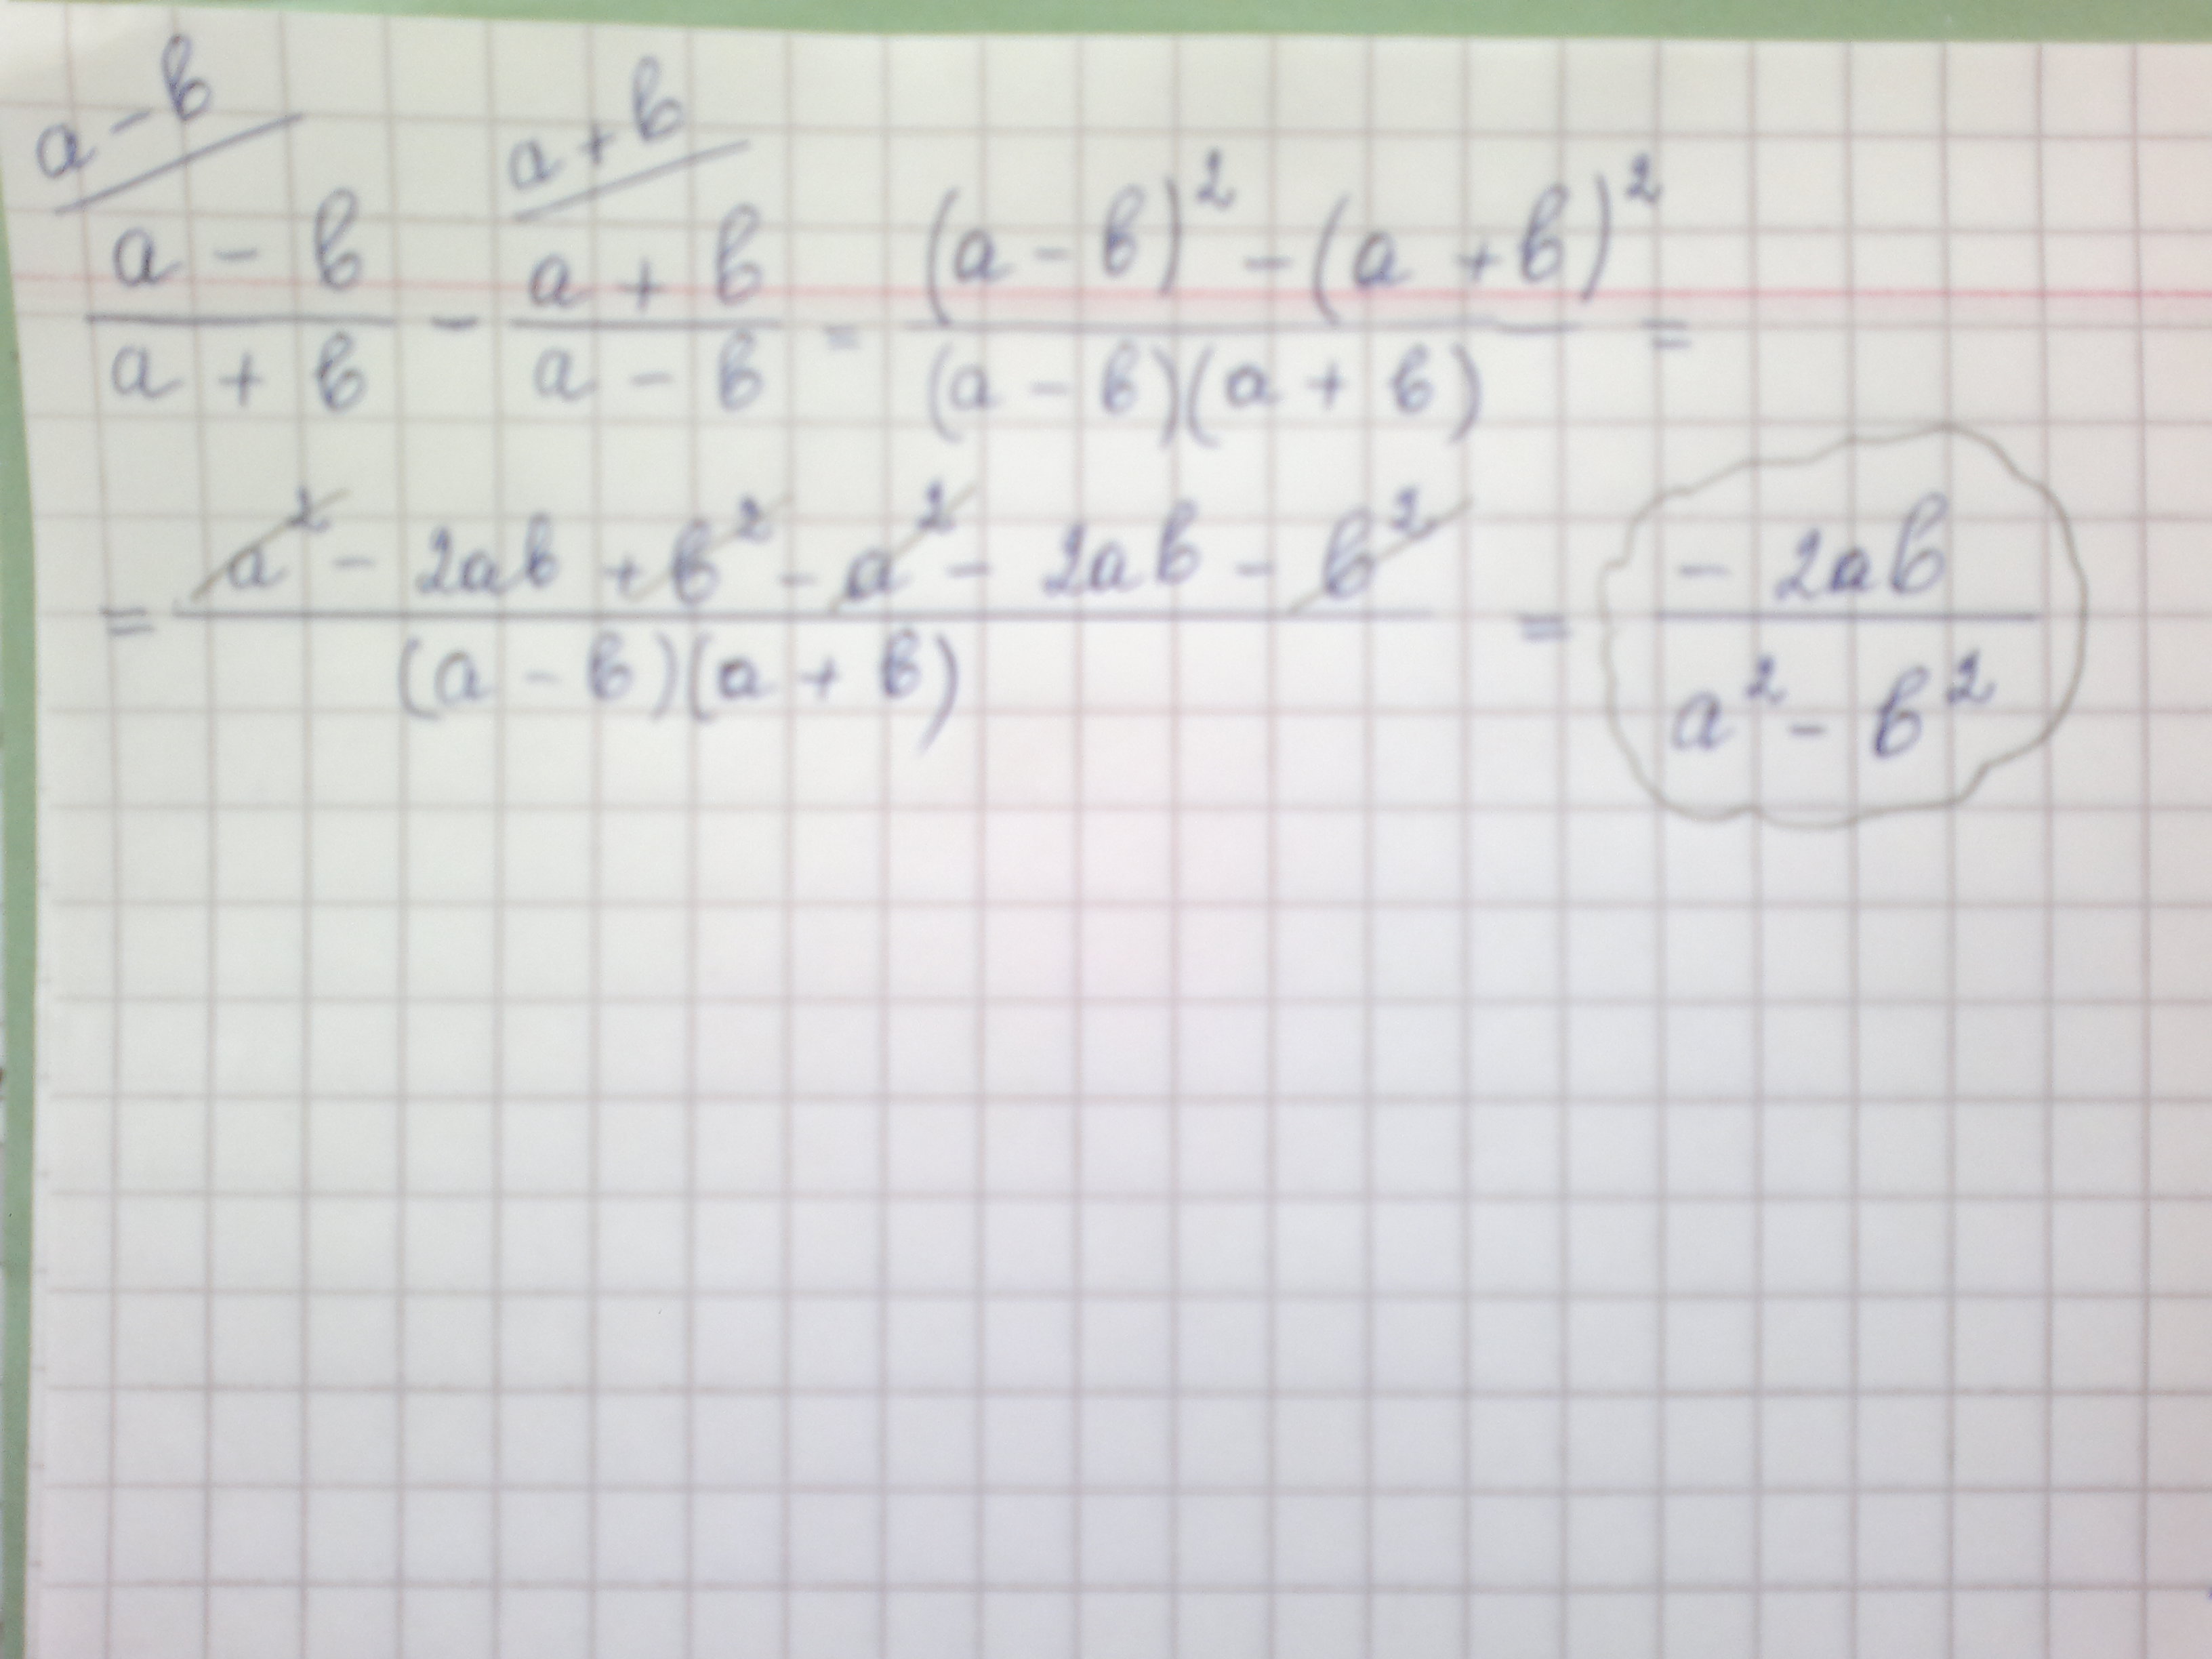 a - b a + b
a - b / a + b - a + b / a - b = (a - b)² - (a + b)² / (a - b)(a + b) =
= a² - 2ab + b² - a² - 2ab - b² / (a - b)(a + b) = - 2ab / a² - b²